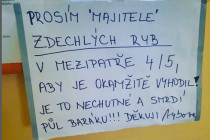 PROSÍM "MAJITELE"
ZDECHLÝCH RYB
V MEZIPATŘE 4/5,
ABY JE OKAMŽITĚ VYHODIL!
JE TO NECHUTNÉ A SMRDÍ
PŮL BARÁKU!!! DĚKUJI